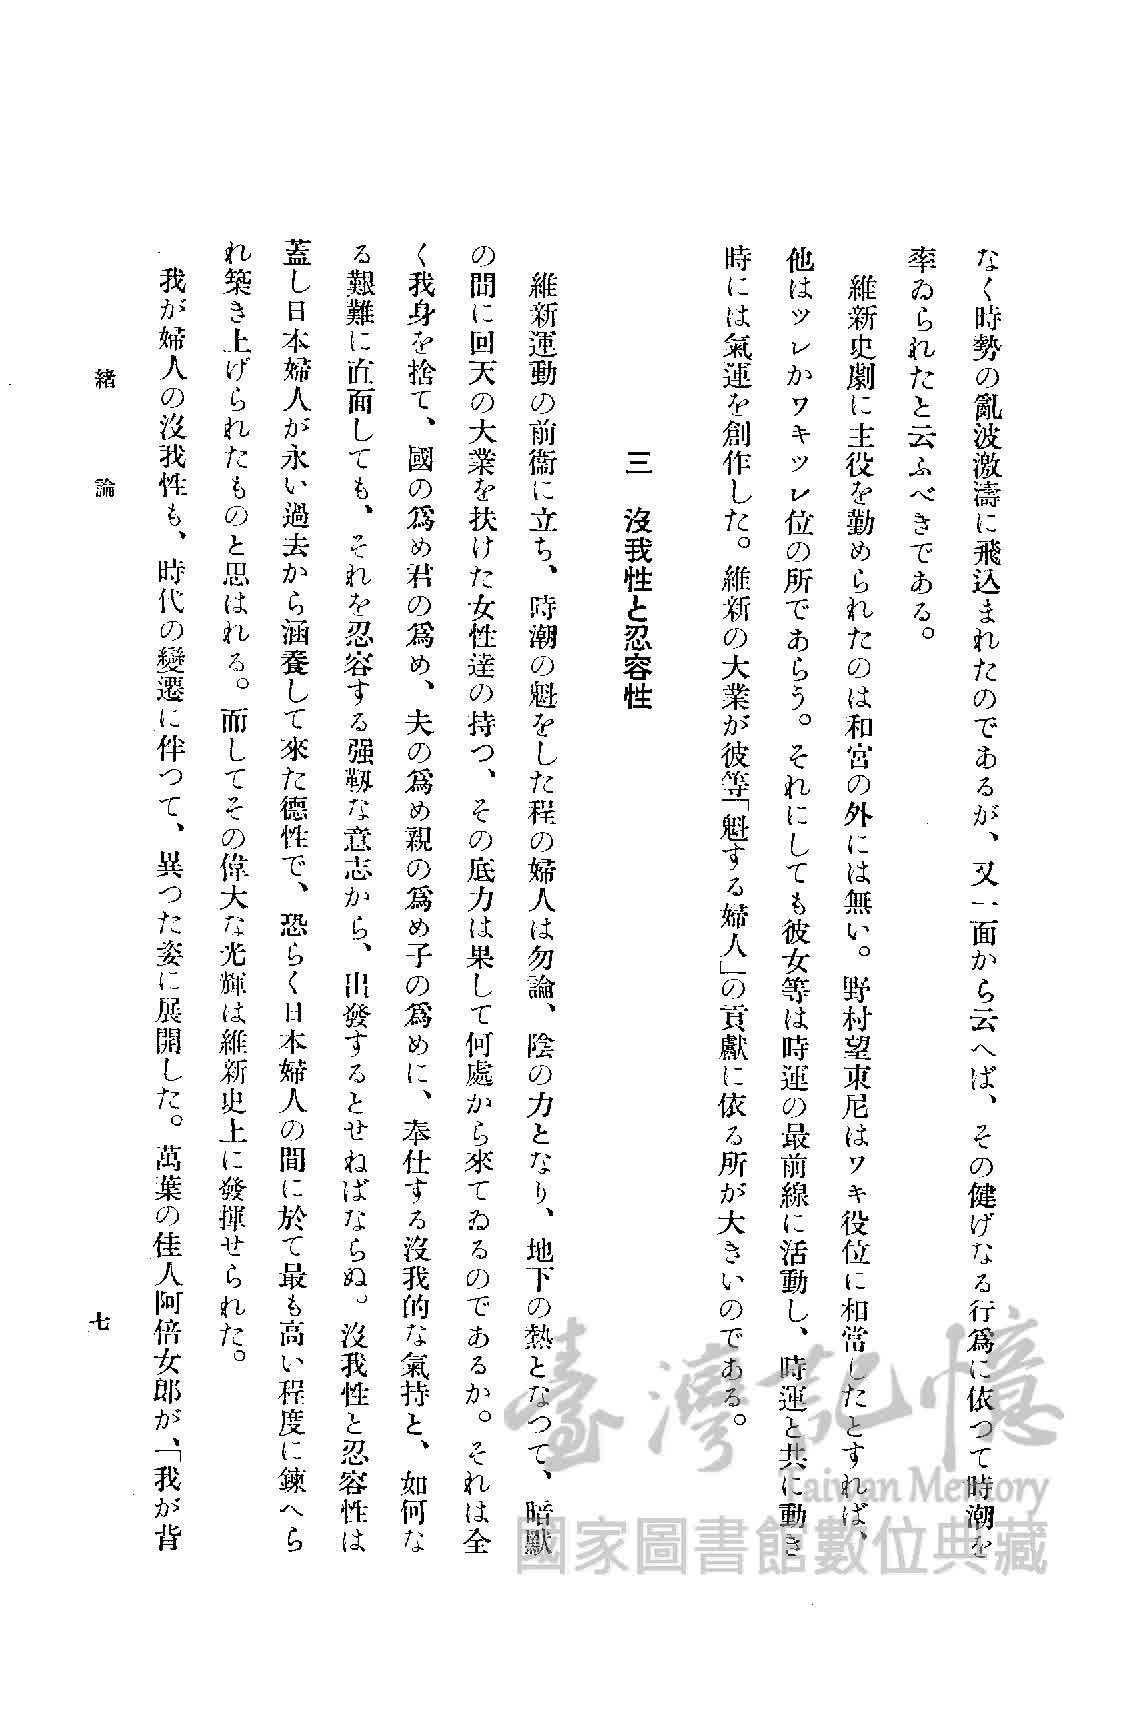 なく時勢の亂波激濤に飛込まれたのであるが、又一面から云へば、その健げなる行爲に依つて時潮を
率ゐられたと云ふべきである。
維新史劇に主役を勤められたのは和宮の外には無い。野村望東尼はワキ役位に和常したとすれば、
他はツレかワキツレ位の所であらう。それにしても彼女等は時運の最前線に活動し、時運と共に動き
時には氣運を創作した。維新の大業が彼等「魁する婦人」の貢獻に依る所が大きいのである。
三 沒我性と忍容性
維新運動の前衞に立ち、時潮の魁をした程の婦人は勿論、陰の力となり、地下の熱となつて、暗默
の間に回天の大業を扶けた女性達の持つ、その底力は果して何處から來てゐるのであるか。それは全
く我身を捨て、國の爲め君の爲め、夫の爲め親の爲め子の爲めに、奉仕する沒我的な氣持と、如何な
る艱難に直面しても、それを忍容する强靱な意志から、出發するとせねばならぬ。沒我性と忍容性は
蓋し日本婦人が永い過去から涵養して來た德性で、恐らく日本婦人の間に於て最も高い程度に鍊へら
れ築き上げられたものと思はれる。而してその偉大な光輝は維新史上に發揮せられた。
我が婦人の沒我性も、時代の變遷に伴つて、異つた姿に展開した。萬葉の佳人阿倍女郎が、「我が背
緖論
七
臺灣記憶
Taiwan Memory
國家圖書館數位典藏